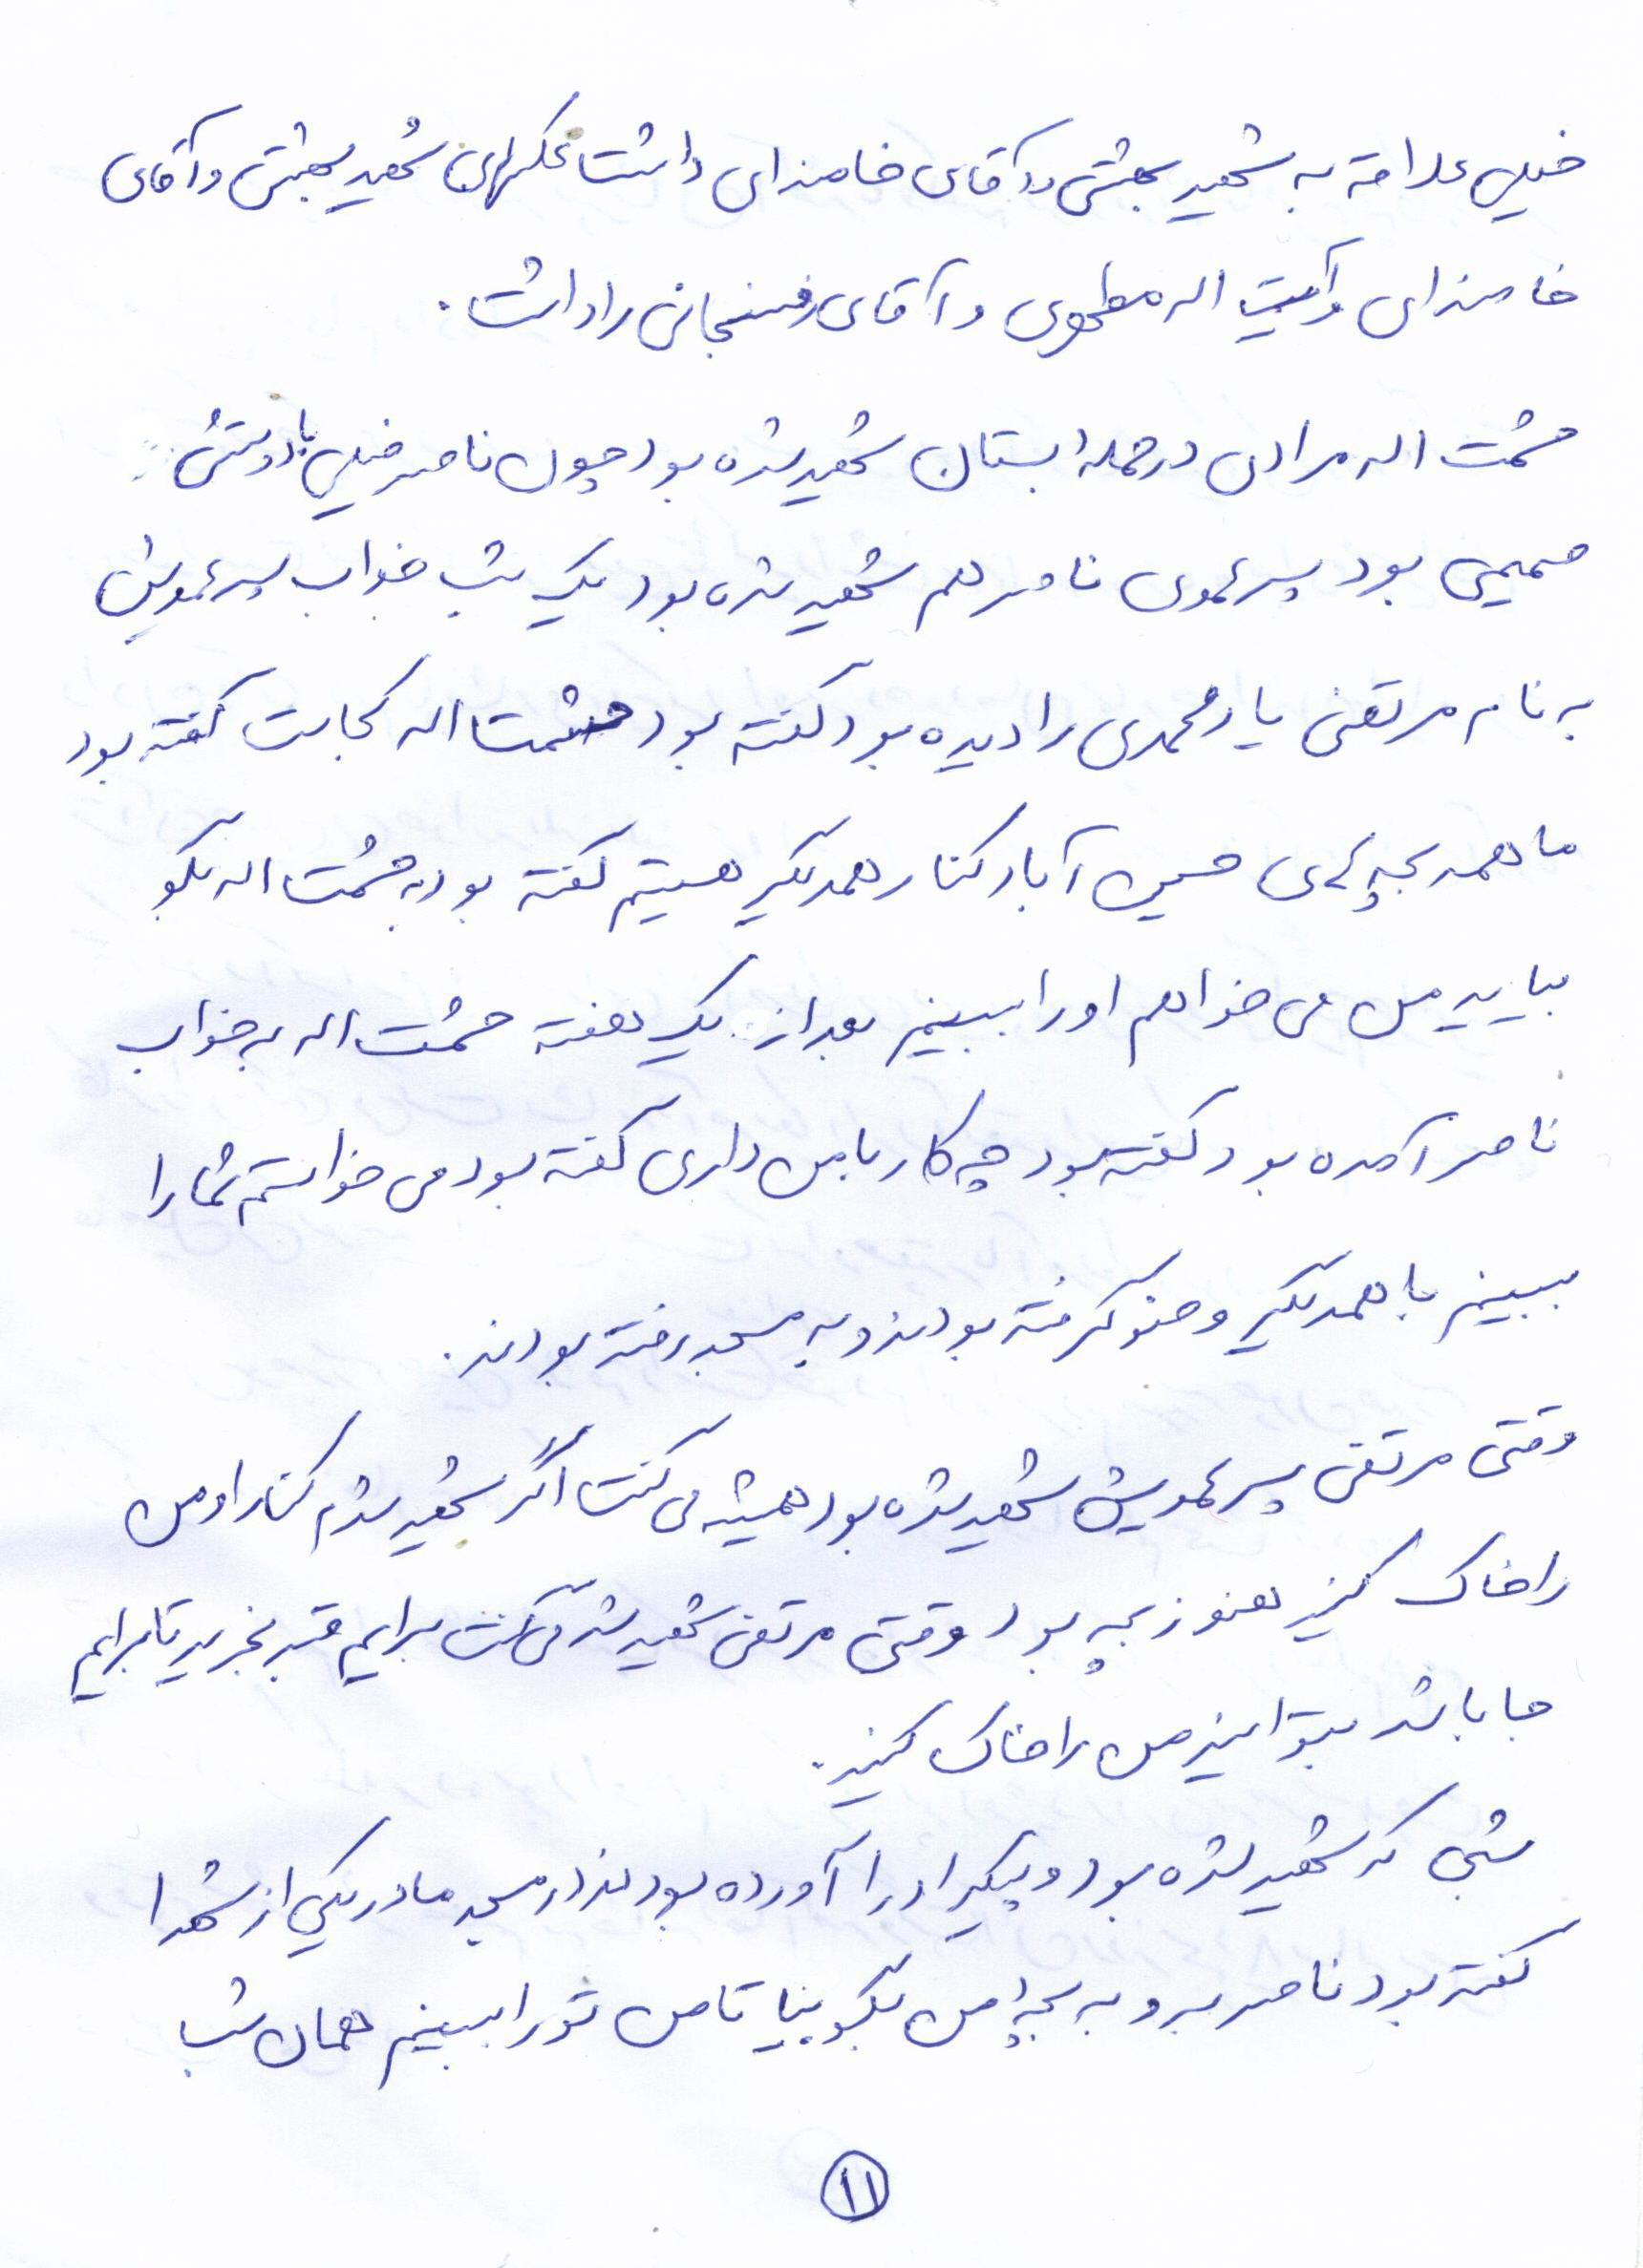 خیلی علاقه به شهید بهشتی و آقای خامنه‌ای داشت عکسهای شهید بهشتی و آقای
خامنه‌ای و آیت اله مطهری و آقای رفسنجانی را داشت.
حشمت اله مرادی در حمله بستان شهید شده بود چون ناصر خیلی با دوستش
صمیمی بود پسرعموی ناصر هم شهید شده بود یک شب خواب پسرعمویش
به نام مرتضی یارمحمدی را دیده بود گفته بود حشمت اله کجاست گفته بود
ما همه بچه‌های حسین آباد کنار همدیگر هستیم گفته بود به حشمت اله بگو
بیاید من می خواهم او را ببینم بعد از یک هفته حشمت اله به خواب
ناصر آمده بود گفته بود چه کار با من داری گفته بود می خواستم شما را
ببینم با همدیگر وضو گرفته بودند و به مسجد رفته بودند.
وقتی مرتضی پسرعمویش شهید شده بود همیشه می گفت اگر شهید شدم کنار او من
را خاک کنید هنوز بچه بود وقتی مرتضی شهید شد می گفت برایم قبر بخرید تا برایم
جا باشد بتوانید من را خاک کنید.
شبی که شهید شده بود و پیکر او را آورده بودند در مسجد مادر یکی از شهدا
گفته بود ناصر برو به بچه من بگو بیا تا من تو را ببینم همان شب
۱۱